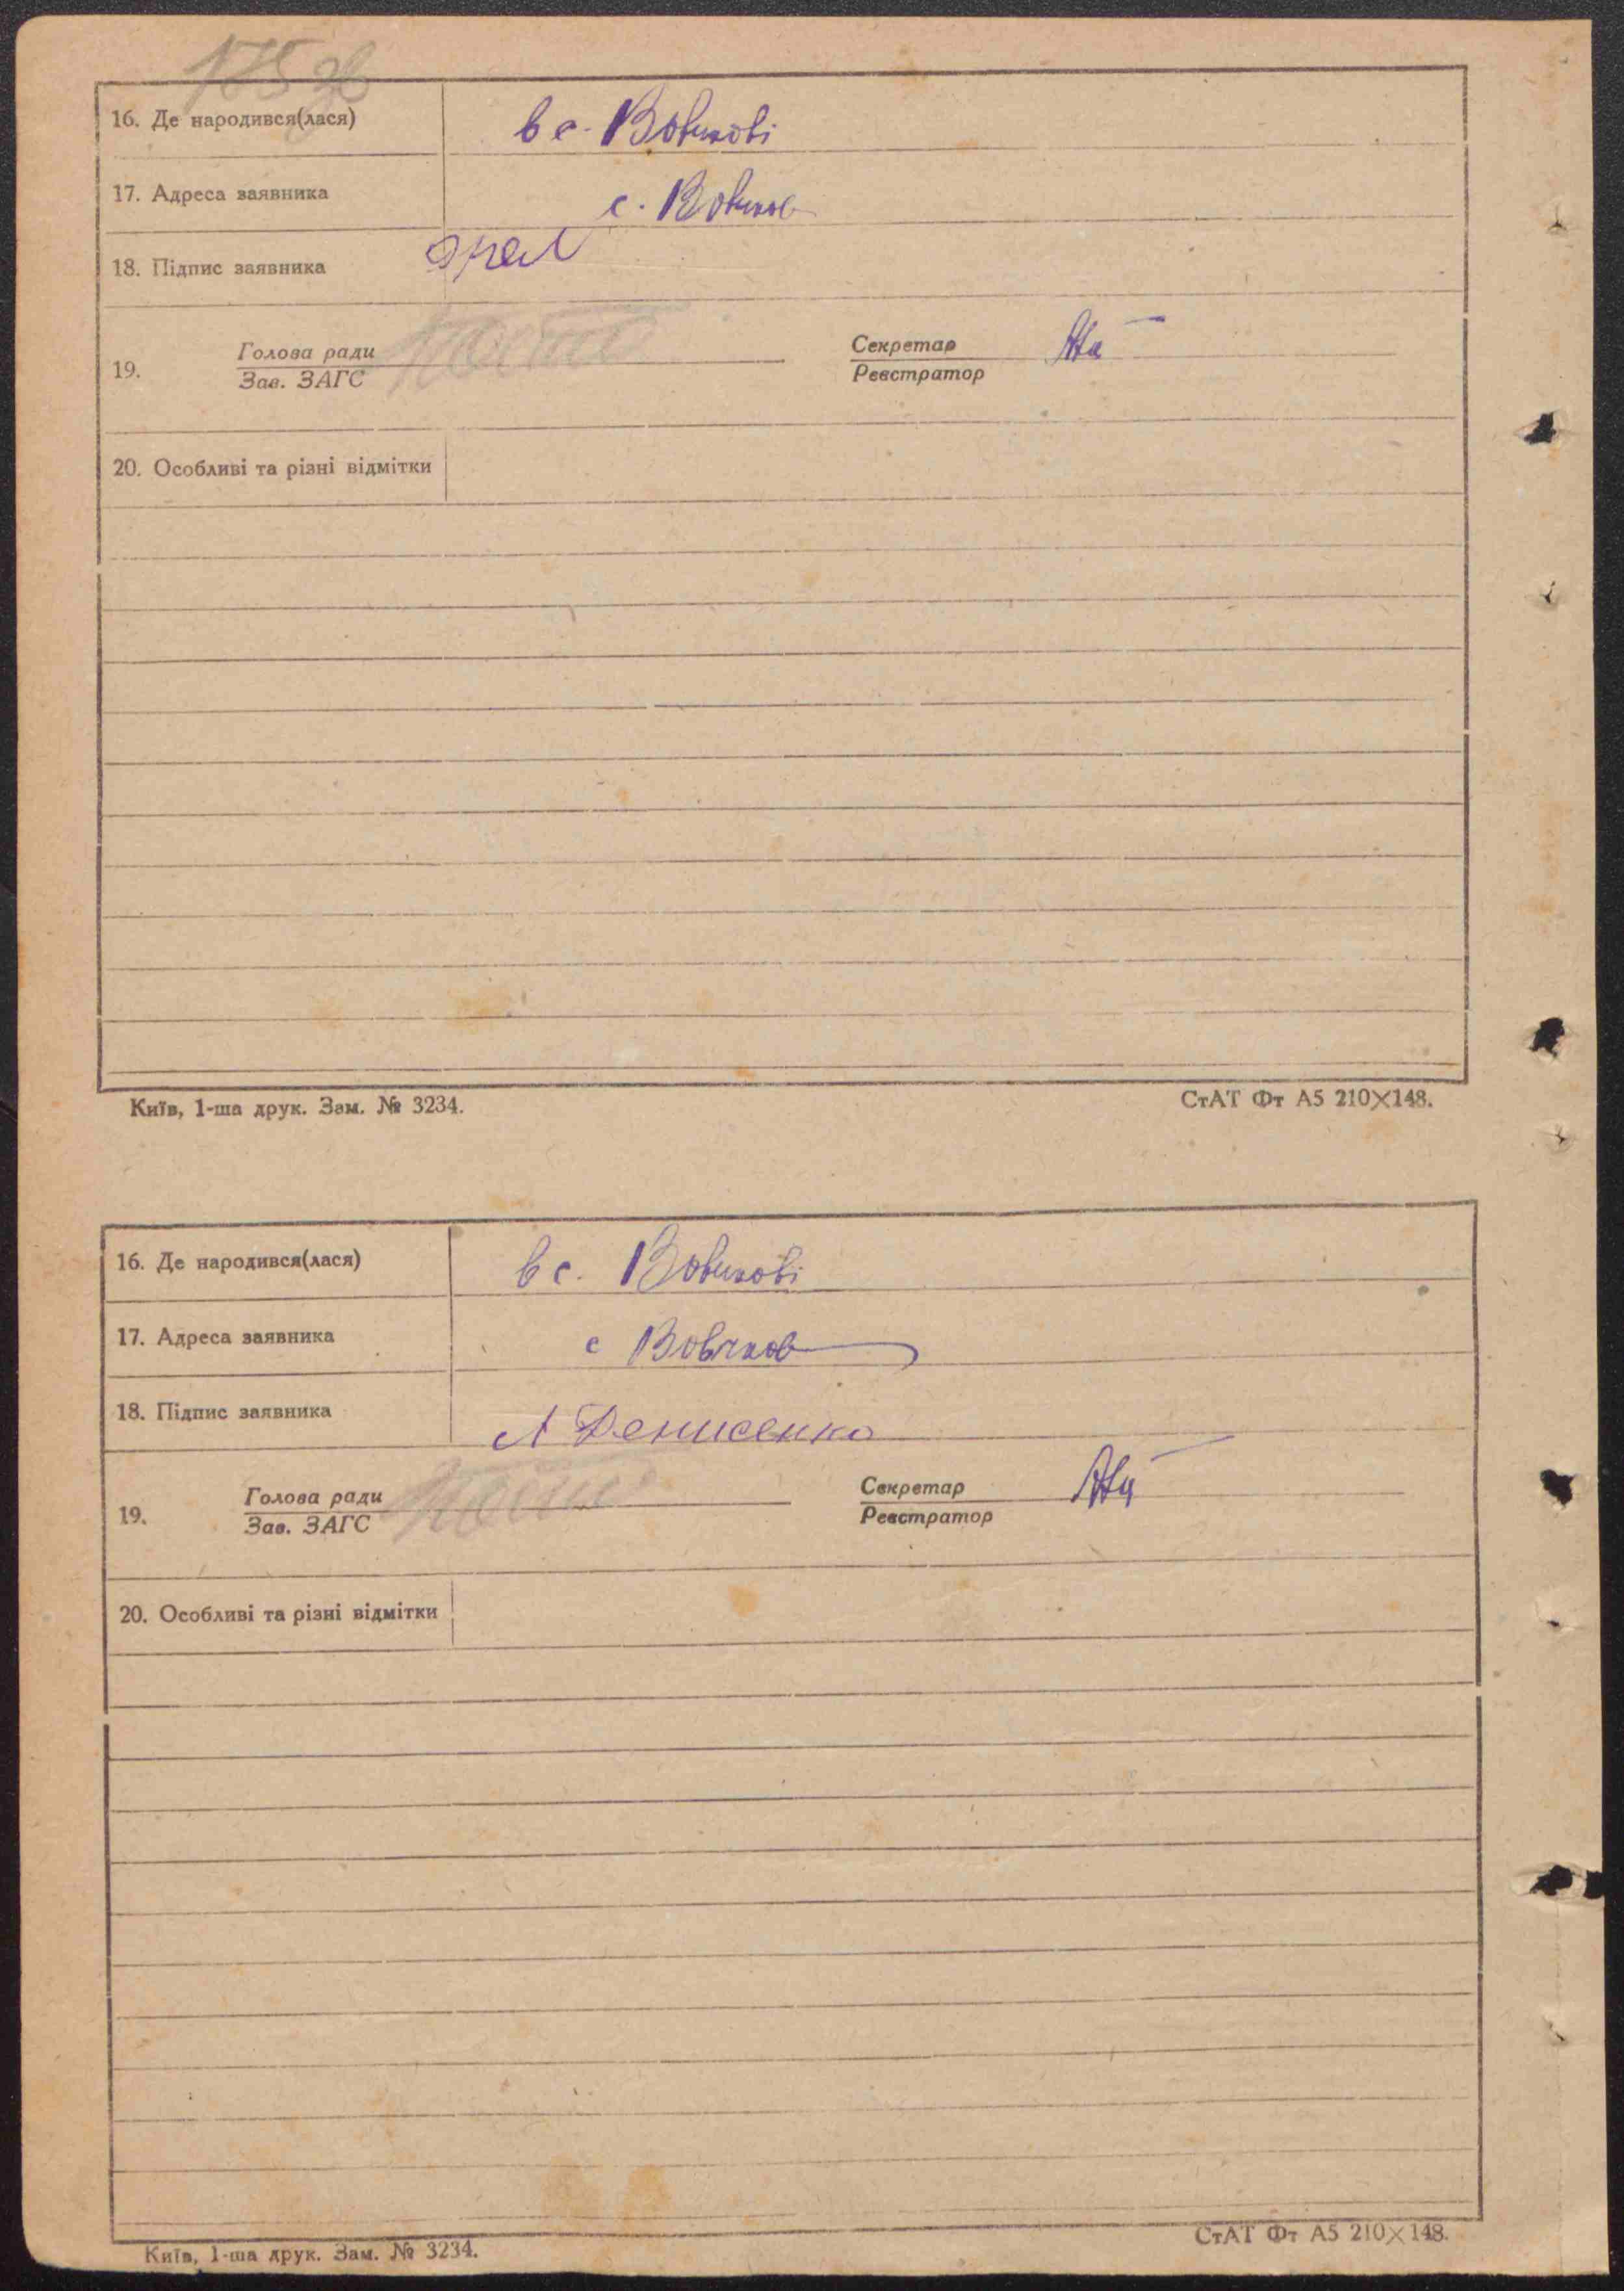 175 зв
16. Де народився(лася) в с. Вовчкові
17. Адреса заявника с. Вовчков
18. Підпис заявника
19. Голова ради Секретар
Зав. ЗАГС Реєстратор
20. Особливі та різні відмітки
Київ, 1-ша друк. Зам. № 3234. СтАТ Фт А5 210×148.
16. Де народився(лася) в с. Вовчкові
17. Адреса заявника с Вовчков
18. Підпис заявника А Денисенко
19. Голова ради Секретар
Зав. ЗАГС Реєстратор
20. Особливі та різні відмітки
Київ, 1-ша друк. Зам. № 3234. СтАТ Фт А5 210×148.